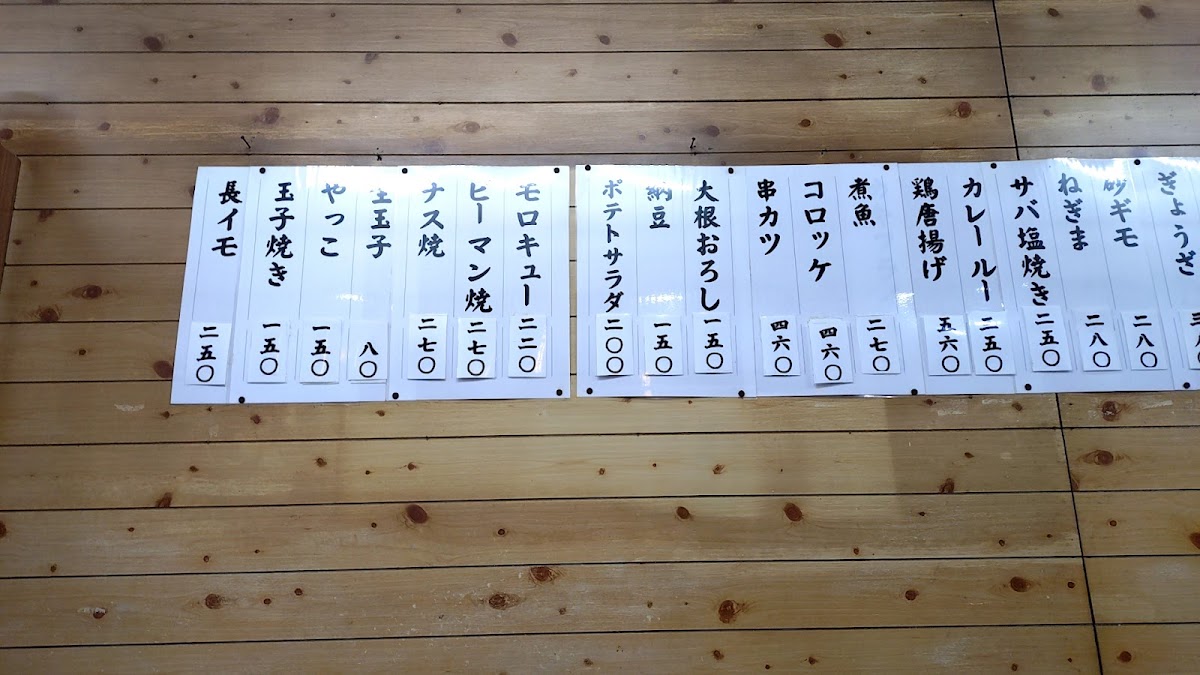 ぎょうざ
砂ギモ 二八〇
ねぎま 二八〇
サバ塩焼き 二五〇
カレールー 二五〇
鶏唐揚げ 五六〇
煮魚 二七〇
コロッケ 四六〇
串カツ 四六〇
大根おろし 一五〇
納豆 一五〇
ポテトサラダ 二〇〇
モロキュー 二二〇
ピーマン焼 二七〇
ナス焼 二七〇
生玉子 八〇
やっこ 一五〇
玉子焼き 一五〇
長イモ 二五〇